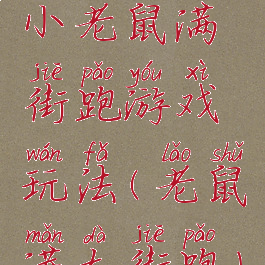 小老鼠满
jiē pǎo yóu xì
街跑游戏
wán fǎ lǎo shǔ
玩法(老鼠
mǎn dà jiē pǎo
满大街跑)